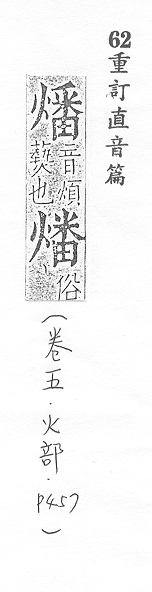 62重訂直音篇
燔音煩
爇也燔俗
(卷五.火部.p457)